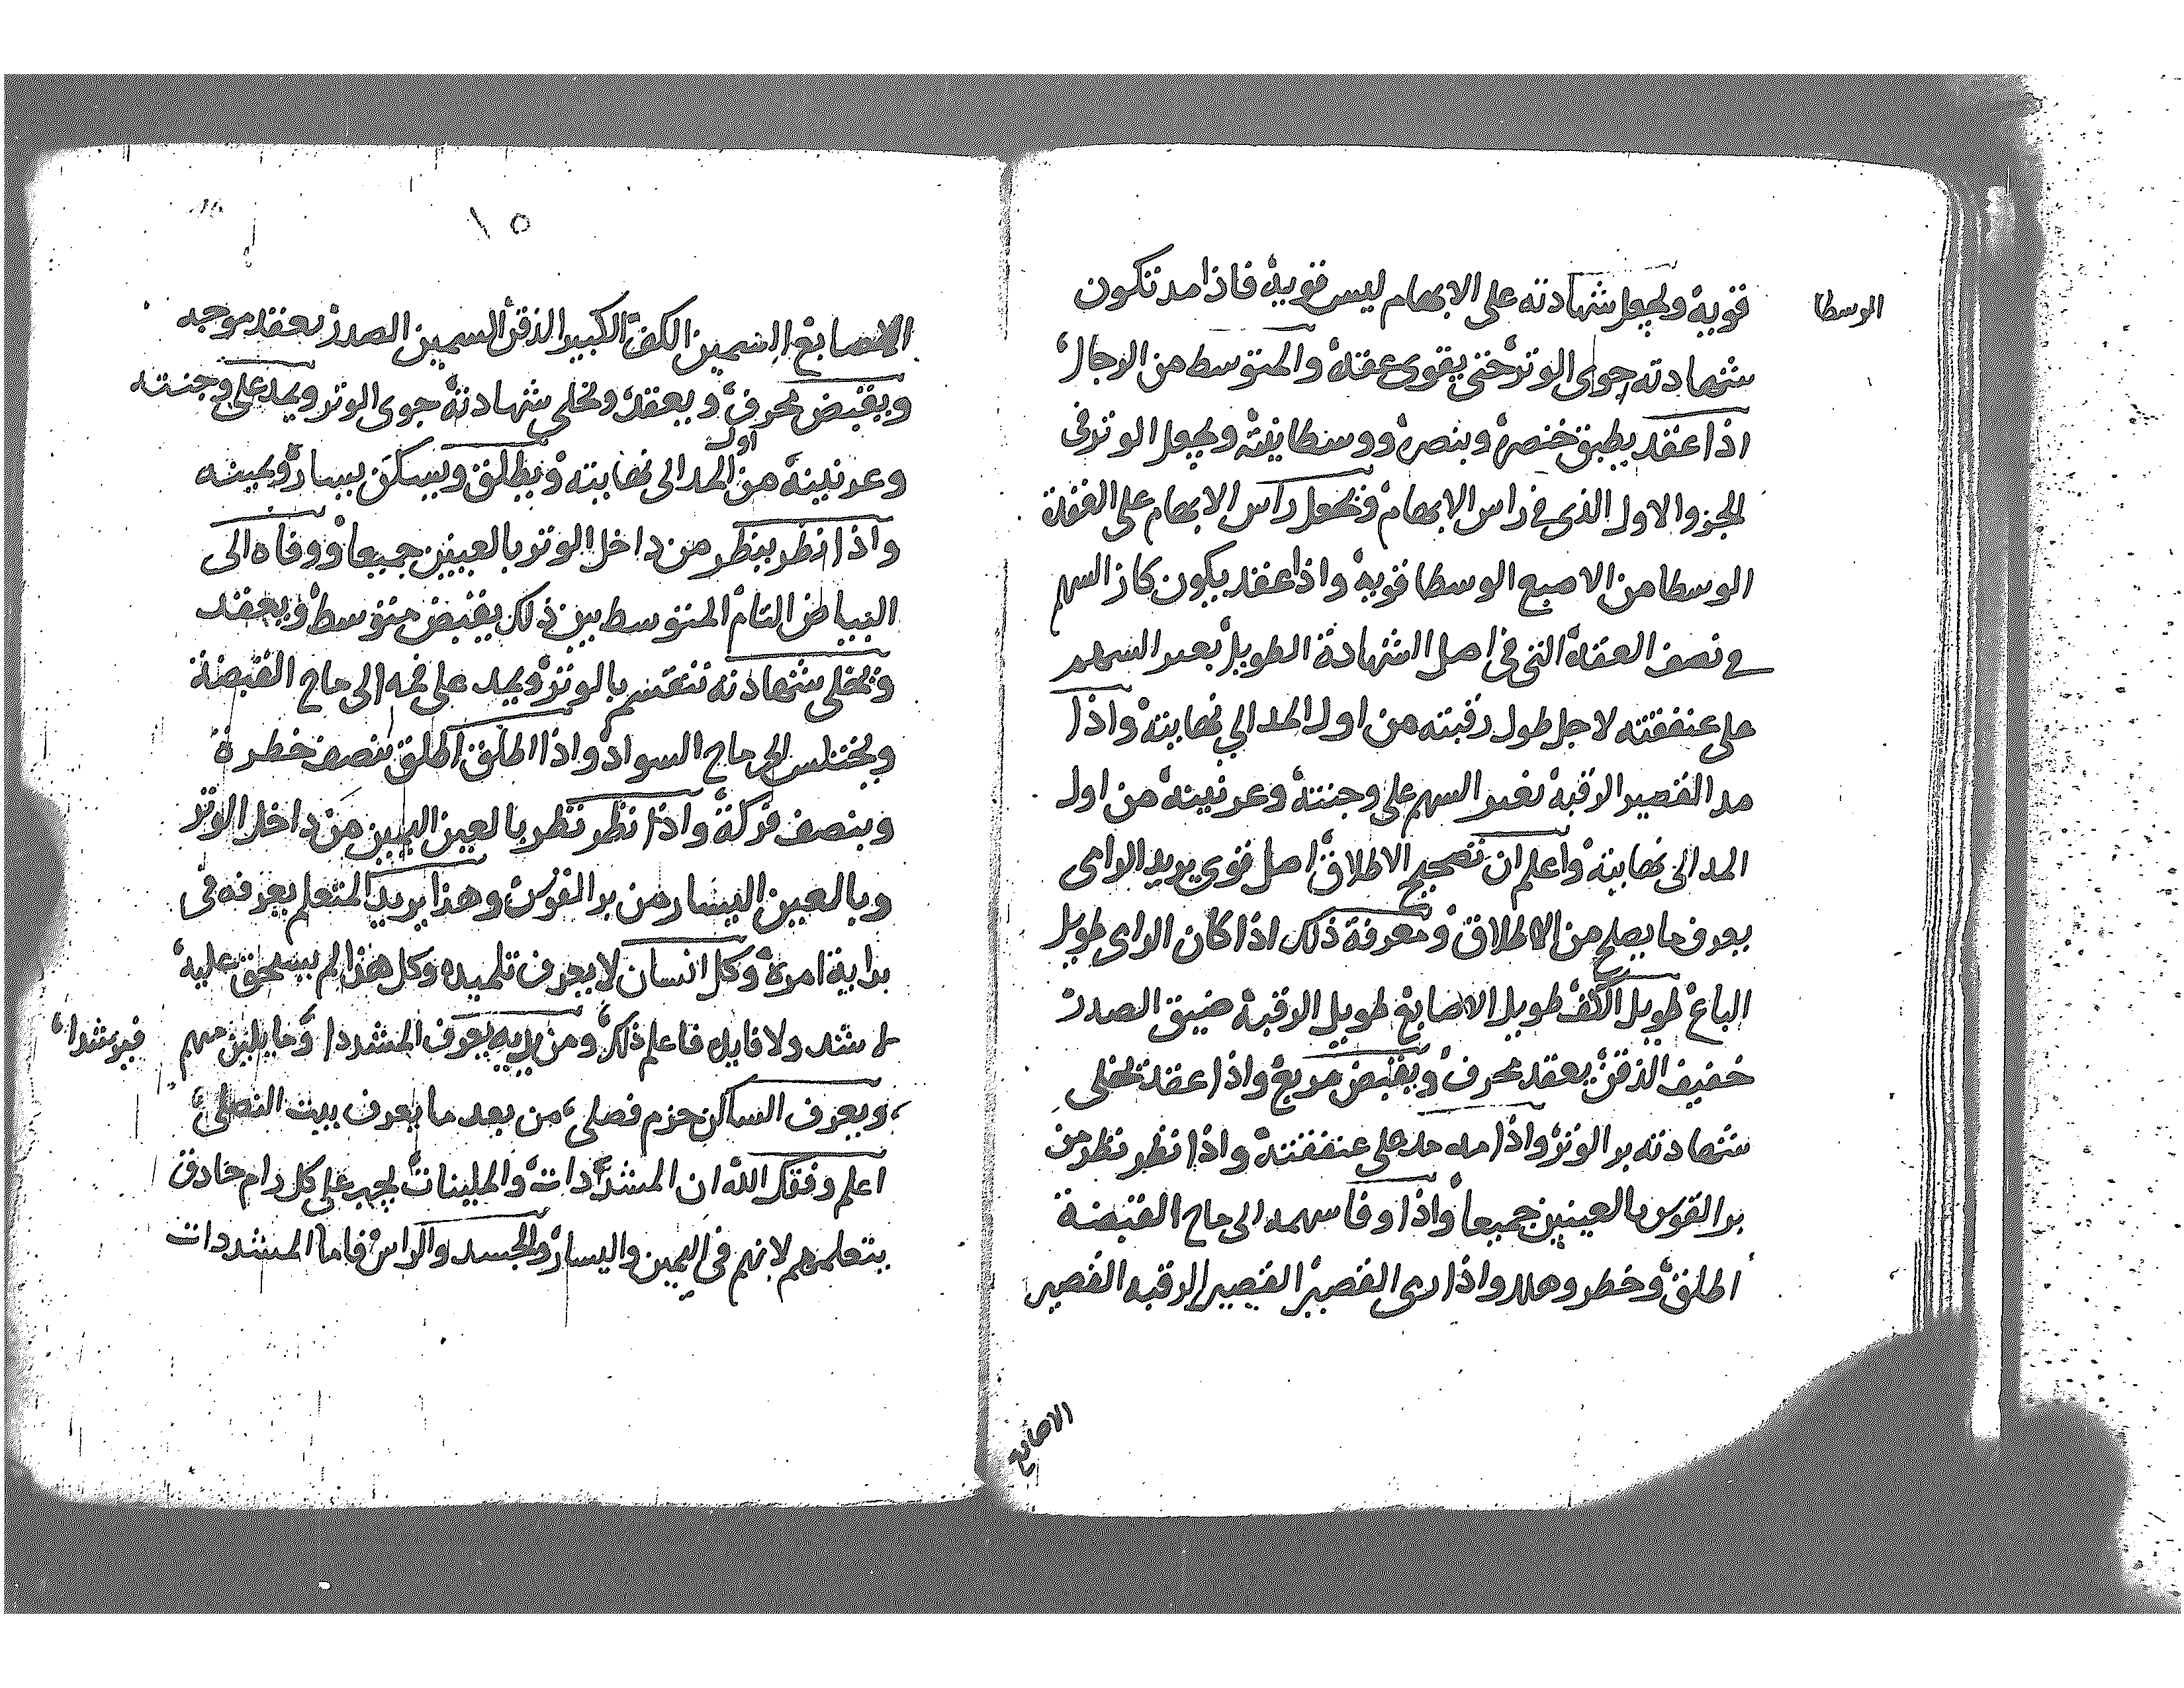 الوسطا
قويه ويجعل شهادته على الابهام ليس قويه فاذا مد تكون
شهادته جوى الوتر حتى يقوى عقده والمتوسط من الرجال
اذا عقد يطبق خنصره وبنصره ووسطانيته ويجعل الوتر فى
الجزو الاول الذى فى راس الابهام ويجعل راس الابهام على العقدة
الوسطا من الاصبع الوسطا قويه واذا عقد يكون كاز السهم
فى نصف العقدة التى فى اصل الشهادة الطويل بعبر السهم
على عنفقته لاجل طول رقبته من اول المد الي نهايته واذا
مد القصير الرقبه تعبر السهم على وجنته وعرنينه من اول
المد الى نهايته واعلم ان تصحيح الاطلاق اصل قوى يريد الرامى
يعرف ما يصلح من الاطلاق ومعرفة ذلك اذا كان الرامى طويل
الباع طويل الكف طويل الاصابع طويل الرقبة ضيق الصدر
خفيف الذقن يعقد محرف ويقبض مربع واذا عقد يخلى
شهادته بر الوتر واذا مد مد على عنفقته واذا نظر نظر من
بر القوس بالعينين جميعا واذا وفا سهمه الى جاح القبضة
اطلق وخطر وهلل واذا رمى القصير القصير الرقبه القصير
الاصابع
١٥
الاصابع السمين الكف الكبير الذقن السمين الصدر بعقد موجه
ويقبض محرف ويعقد ويخلى شهادته جوى الوتر ويمد على وجنته
وعرنينه من اول المد الى نهايته ويطلق ويسكن يساره ويمينه
واذا نظر ينظر من داخل الوتر بالعينين جميعا ووفاه الى
البياض التام المتوسط بين ذلك يقبض متوسط ويعقد
ويخلى شهادته تنقسم بالوتر ويمد على فمه الى جاح القبضة
ويختلس الجرجاح السواد واذا اطلق اطلق بنصف خطرة
وبنصف فركة واذا نظر نظر بالعين اليمين من داخل الوتر
وبالعين اليسار من بر القوس وهذا يريد المتعلم يعرفه فى
بداية امره وكل انسان لا يعرف تلميده وكل هذا لم يستحق عليه
شد ولا فايده فاعلم ذلك ومن يريد يعرف المشددا وما يلين منهم فيرشدا
ويعرف الساكن حزم فصلى من بعد ما يعرف بيت النصلى
اعلم وفقك الله ان المشددات والملينات يجب على كل رام حادق
يتعلمهم لانهم فى اليمين واليسار والجسد والراس فاما المشددات